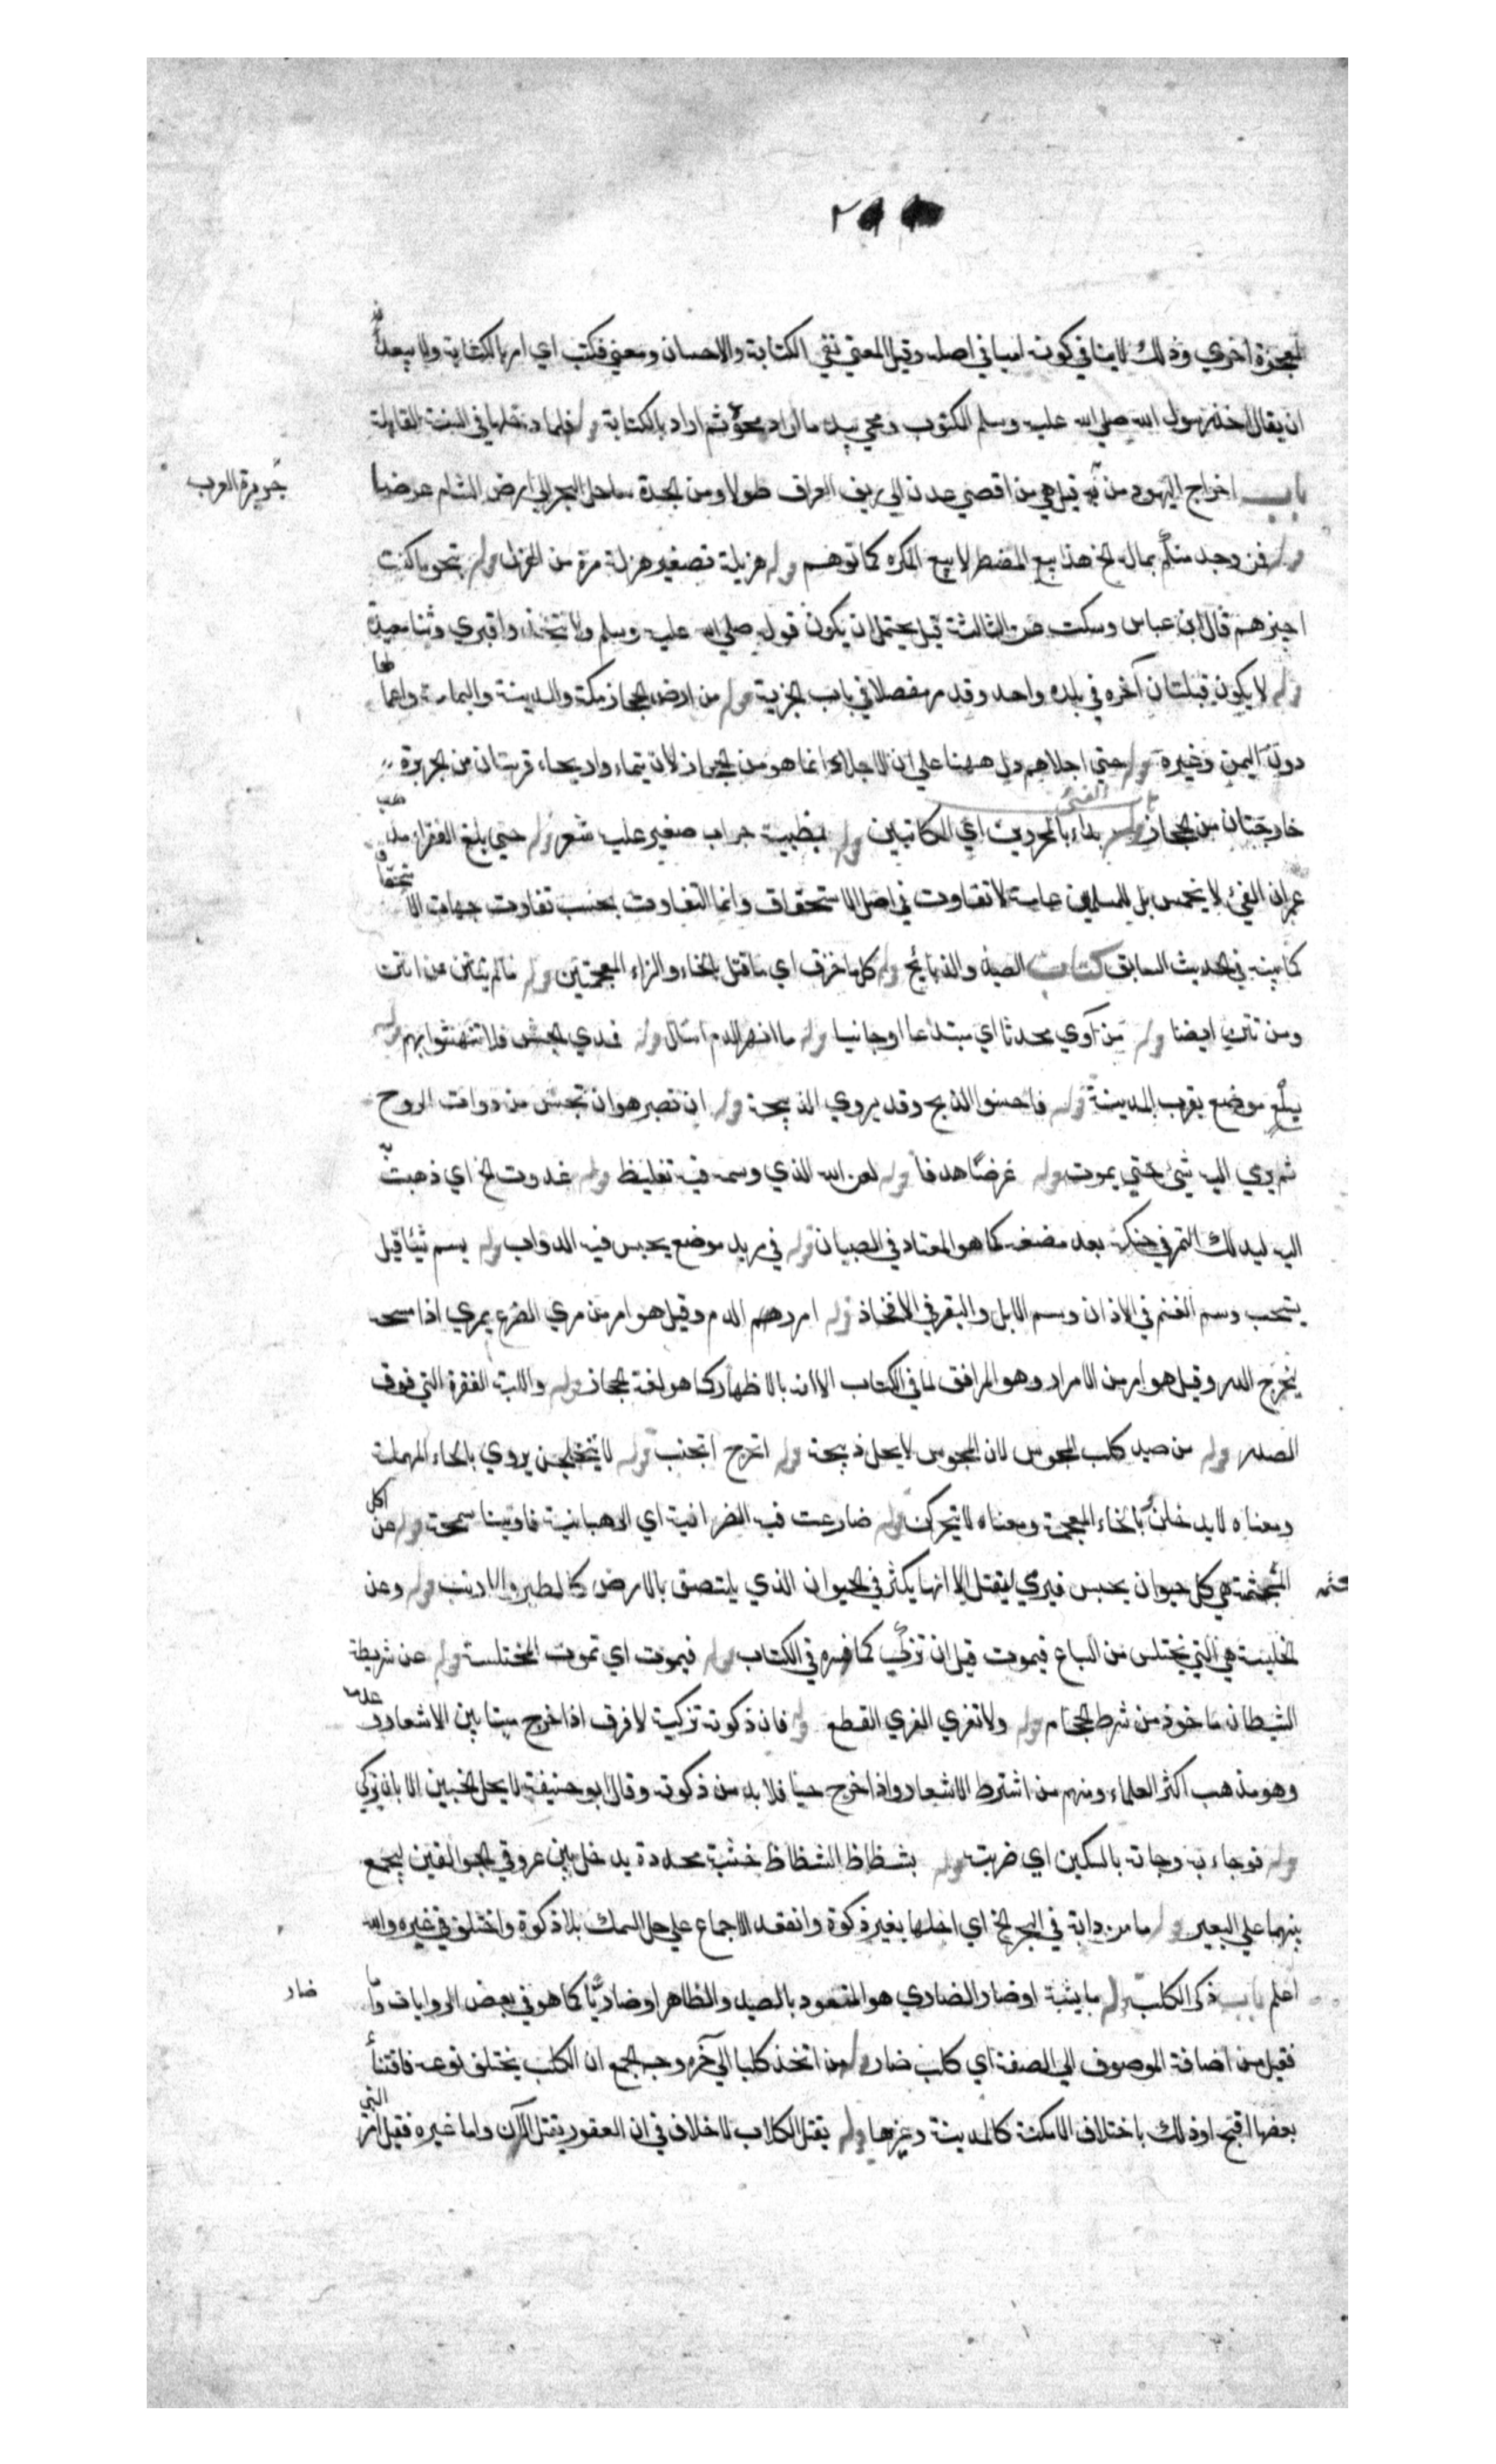 معجزة اخري وذلك لاينافي كونه اميا في اصله وقيل المعني نفي الكتابة والاحسان ومعني فكتب اي امر بالكتابة ولا يبعد
ان يقال اخذ رسول الله صلي الله عليه وسلم المكتوب ومحي بيده ما اراد محوه ثم اراد بالكتابة وله فلما دخلها في السنة القابلة
باب اخراج اليهود من قيل هي من اقصي عدن الي ريف العراق طولا ومن الجدة ساحل البحر الي ارض الشام عرضا
جزيرة العرب
وله فمن وجد منكم بماله الخ هذا بيع المضطر لا بيع المكره كما توهم وله هزيلة تصغير هزلة مرة من الهزل وله بنحو ما كنت
اجيزهم قال ابن عباس وسكت عن الثالثة قيل يحتمل ان يكون قوله صلي الله عليه وسلم ولا تتخذوا قبري وثنا يعبد
وله لا يكون قبلتان آخره في بلده واحد وقد مر مفصلا في باب الجزية وله من ارض الحجاز مكة والمدينة واليمامة
دون اليمن وغيره وله حتي اجلاهم دل ههنا علي ان الاجلاء انما هو من الحجاز لان تيماء واريحاء قريتان من الجزيرة
خارجتان من الحجاز باب الفئ وله بداء بالمحررين اي المكاتبين وله بظبية جراب صغير عليه شعر وله حتي بلغ الفقراء
عمران الفئ لا يخمس بل للمسلمين عامة لا تفاوت في اصل الاستحقاق وانما التفاوت بحسب تفاوت جهات
كما بينه في الحديث السابق كتاب الصيد والذبائح وله كلما خزق اي ما قتل بالخاء والزاء المعجمتين وله فالم ينتن من انتن
ومن نتن ايضا وله من آوي محدثا اي مبتدعا او جانيا وله ما انهر الدم اسال وله فمدي الحبش فلا تتشبهوا بهم وله
بسلع موضع بقرب المدينة وله فاحسنوا الذبح وقد يروي الذبيحة وله ان تصبر هو ان تحبس من ذوات الروح
ثم يرمي اليه شئ حتي يموت وله غرضا هدفا وله لعن الله الذي وسمه فيه تغليظ وله غدوت الخ اي ذهبت
اليه ليدلك التمر في حنكه بعد مضغه كما هو المعتاد في الصبيان وله في مربد موضع يحبس فيه الدواب وله يسم شيئا قيل
يستحب وسم الغنم في الاذان وسم الابل والبقر في الافخاذ وله امرر الدم وقيل هو امر من مري الضرع يمري اذا مسحه
ليخرج الدر وقيل هو امر من الامرار وهو المرافق لما في الكتاب الا انه بالاظهار كما هو لغة الحجاز وله واللبة الفقرة التي فوق
الصدر وله من صيد كلب المجوس لان المجوس لا يحل ذبيحة وله اتحرج اتجنب وله لا يتخلجن يروي بالحاء المهملة
ومعناه لا يدخلن بالخاء المعجمة ومعناه لا يتحركن وله ضارعت فيه النصرانية اي الرهبانية فاوتينا سمحة وله عن اكل
المجثمة هي كل حيوان يحبس فيرمي ليقتل الا انها يكثر في الحيوان الذي يلتصق بالارض كالطير والارنب وله وعن
الخليسة هي التي تختلس من السباع فيموت قبل ان تزكي كما فسره في الكتاب وله فيموت اي تموت المختلسة وله عن شريطة
الشيطان ماخوذ من شرط الحجام وله ولا تفري الفري القطع وله فان ذكوته تزكية لا فرق اذا خرج ميتا بين الاشعار و
وهو مذهب اكثر العلماء ومنهم من اشترط الاشعار واذا خرج حيا فلا بد من ذكوته وقال ابو حنيفة لا يحل الجنين الا بان يزكي
وله فوجاء به وجاته بالسكين اي ضربته وله بشظاظ الشظاظ خشبة محددة يدخل بين عروتي الجوالقين ليجمع
بينهما علي البعير وله ما من دابة في البحر الخ اي احلها بغير ذكوة وانعقد الاجماع علي حل السمك بلا ذكوة واختلف في غيره والله
اعلم باب ذكر الكلب وله ماشية او ضار الضاري هو المتعود بالصيد والظاهر او ضاريا كما هو في بعض الروايات
ضار
فقيل من اضافة الموصوف الي الصفة اي كلب ضار وله من اتخذ كلبا الي آخره وجه الجمع ان الكلب يختلف نوعه فاقتنأ
بعضها اقبح او ذلك باختلاف الامكنة كالمدينة وغيرها وله بقتل الكلاب لا خلاف في ان العقور يقتل واما غيره فقيل